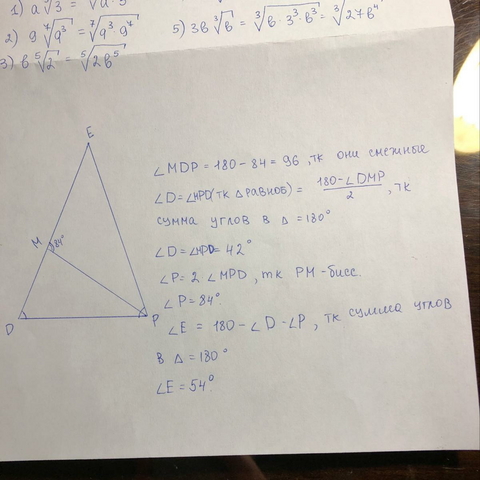 1) a √3 = √a · 3
2) 9 ⁷√9³ = ⁷√9³ · 9⁷
5) 3в ³√в = ³√в · 3³ · в³ = ³√27в⁴
3) в ⁵√2 = ⁵√2в⁵
E
M
84°
D
P
∠MDP = 180 - 84 = 96 , тк они смежные
∠D = ∠MPD (тк △ равноб) = 180 - ∠DMP / 2 , тк
сумма углов в △ = 180°
∠D = ∠MPD = 42°
∠P = 2 ∠MPD , тк PM - бисс.
∠P = 84°
∠E = 180 - ∠D - ∠P , тк сумма углов
в △ = 180°
∠E = 54°